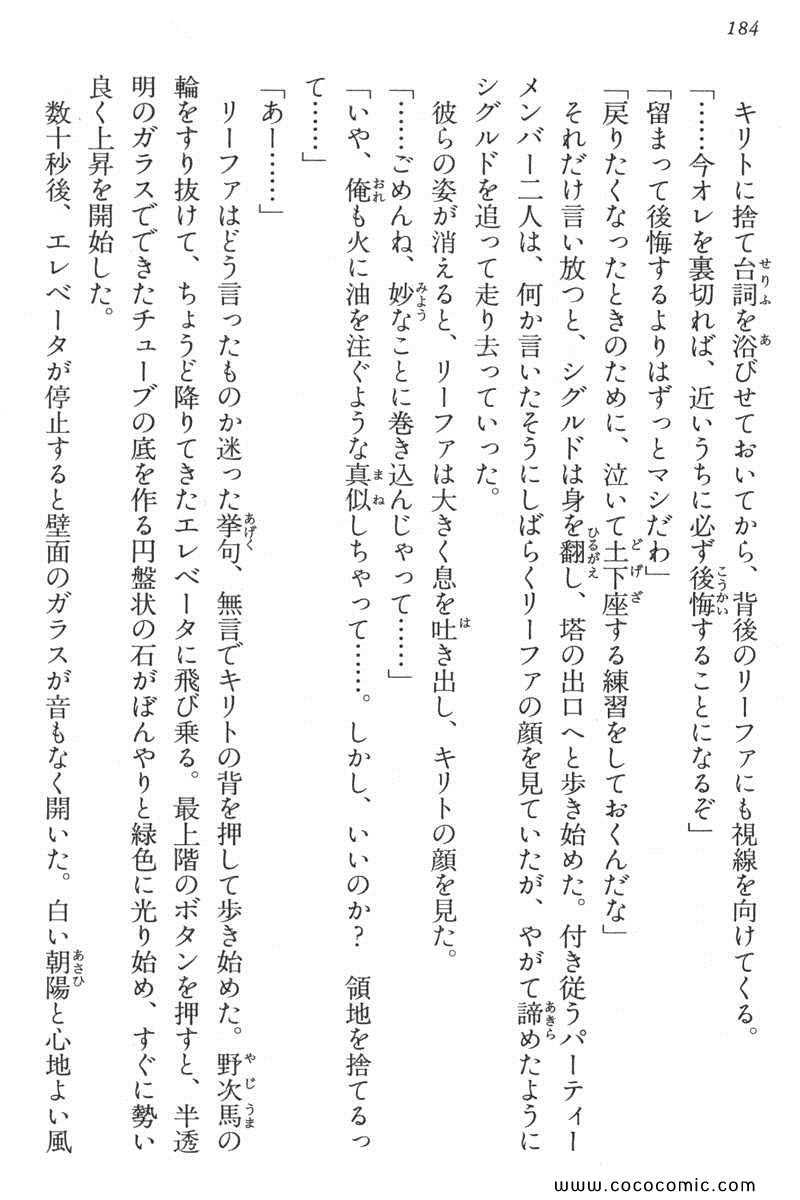 184
キリトに捨て台詞を浴びせておいてから、背後のリーファにも視線を向けてくる。
「……今オレを裏切れば、近いうちに必ず後悔することになるぞ」
「留まって後悔するよりはずっとマシだわ」
「戻りたくなったときのために、泣いて土下座する練習をしておくんだな」
それだけ言い放つと、シグルドは身を翻し、塔の出口へと歩き始めた。付き従うパーティー
メンバー二人は、何か言いたそうにしばらくリーファの顔を見ていたが、やがて諦めたように
シグルドを追って走り去っていった。
彼らの姿が消えると、リーファは大きく息を吐き出し、キリトの顔を見た。
「……ごめんね、妙なことに巻き込んじゃって……」
「いや、俺も火に油を注ぐような真似しちゃって……。しかし、いいのか？　領地を捨てるっ
て……」
「あー……」
リーファはどう言ったものか迷った挙句、無言でキリトの背を押して歩き始めた。野次馬の
輪をすり抜けて、ちょうど降りてきたエレベータに飛び乗る。最上階のボタンを押すと、半透
明のガラスでできたチューブの底を作る円盤状の石がぼんやりと緑色に光り始め、すぐに勢い
良く上昇を開始した。
数十秒後、エレベータが停止すると壁面のガラスが音もなく開いた。白い朝陽と心地よい風
www.cococomic.com